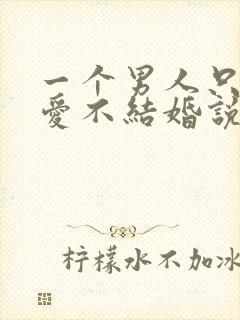 一个男人只
爱不結婚說
柠檬水不加冰